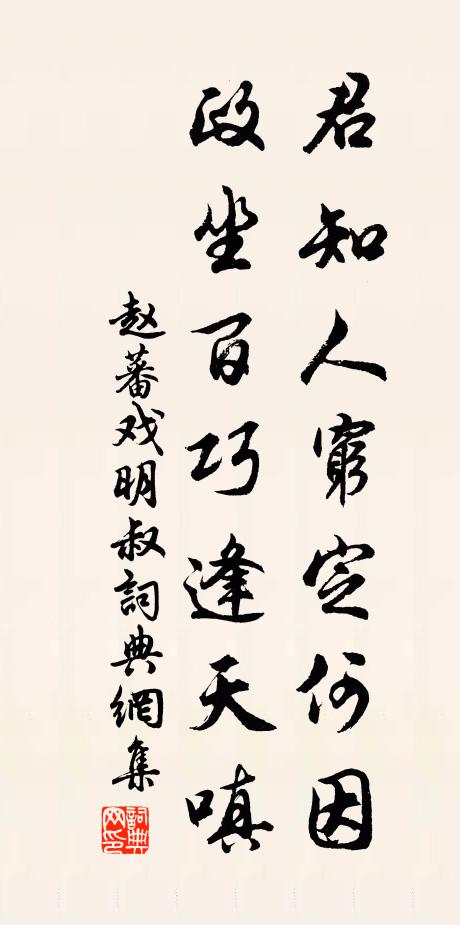 君知人窮定何因
政坐百巧逢天嗔
赵蕃戏明叔詞典網集
詞典網印